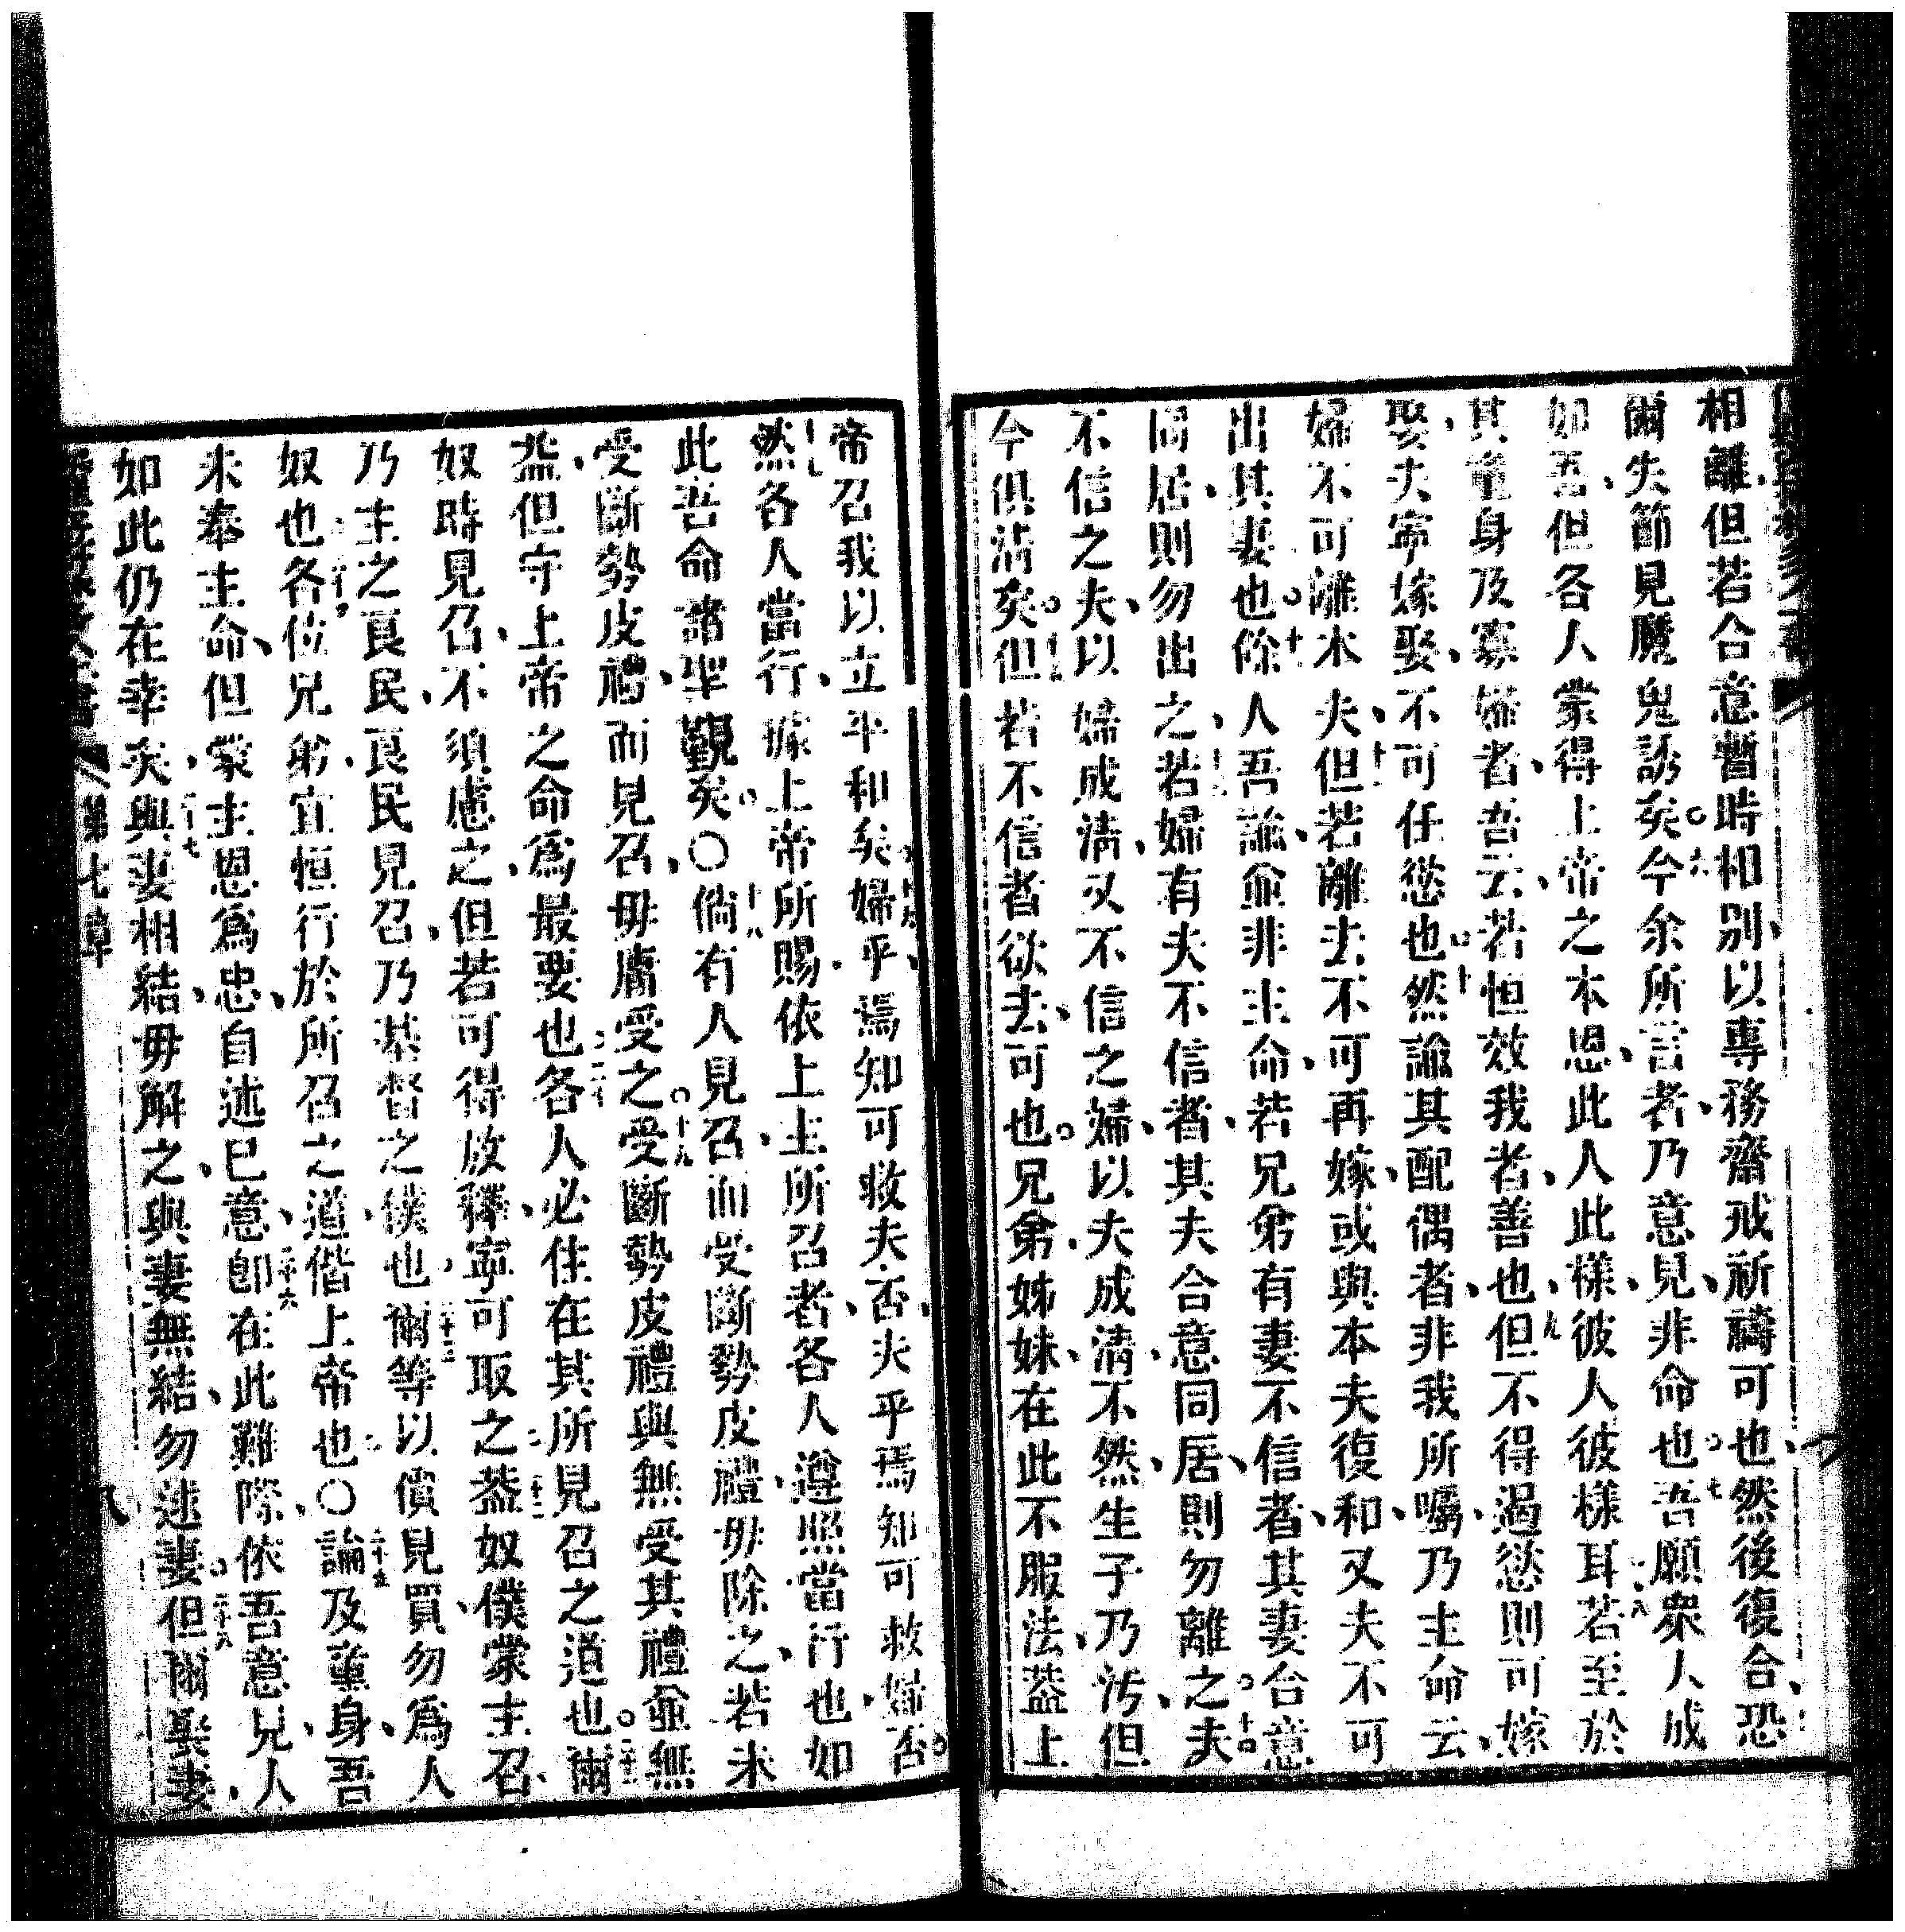 相離但若合意暫時相別以專務齋戒祈禱可也然後復合恐
爾失節見魔鬼誘矣○六今余所言者乃意見非命也○七吾願衆人成
如吾但各人蒙得上帝之本恩此人此樣彼人彼樣耳○八若至於
其童身及寡婦者吾云若恒效我者善也九但不得遏慾則可嫁
娶夫寧嫁娶不可任慾也○十然諭其配偶者非我所囑乃主命云
婦不可離本夫十一但若離去不可再嫁或與本夫復和又夫不可
出其妻也○十二餘人吾諭僉非主命若兄弟有妻不信者其妻合意
同居則勿出之十三若婦有夫不信者其夫合意同居則勿離之○十四夫
不信之夫以婦成淸又不信之婦以夫成淸不然生子乃汚但
今俱淸矣○十五但若不信者欲去可也○兄弟姊妹在此不服法葢上
帝召我以立平和矣○十六婦乎焉知可救夫否夫乎焉知可救婦否○
十七然各人當行據上帝所賜依上主所召者各人遵照當行也如
此吾命諸聖觀矣○十八倘有人見召而受斷勢皮禮毋除之若未
受斷勢皮禮而見召毋庸受之○十九受斷勢皮禮與無受其禮僉無
葢但守上帝之命爲最要也二十各人必住在其所見召之道也○二十一爾
奴時見召不須慮之但若可得放釋寧可取之二十二葢奴僕蒙主召
乃主之良民良民見召乃基督之僕也二十三爾等以價見買勿爲人
奴也二十四各位兄弟宜恒行於所召之道偕上帝也○二十五論及童身吾
未奉主命但蒙主恩爲忠自述已意二十六卽在此難際依吾意見人
如此仍在幸矣二十七與妻相結毋解之與妻無結勿逑妻○二十八但爾娶妻
第七章
八